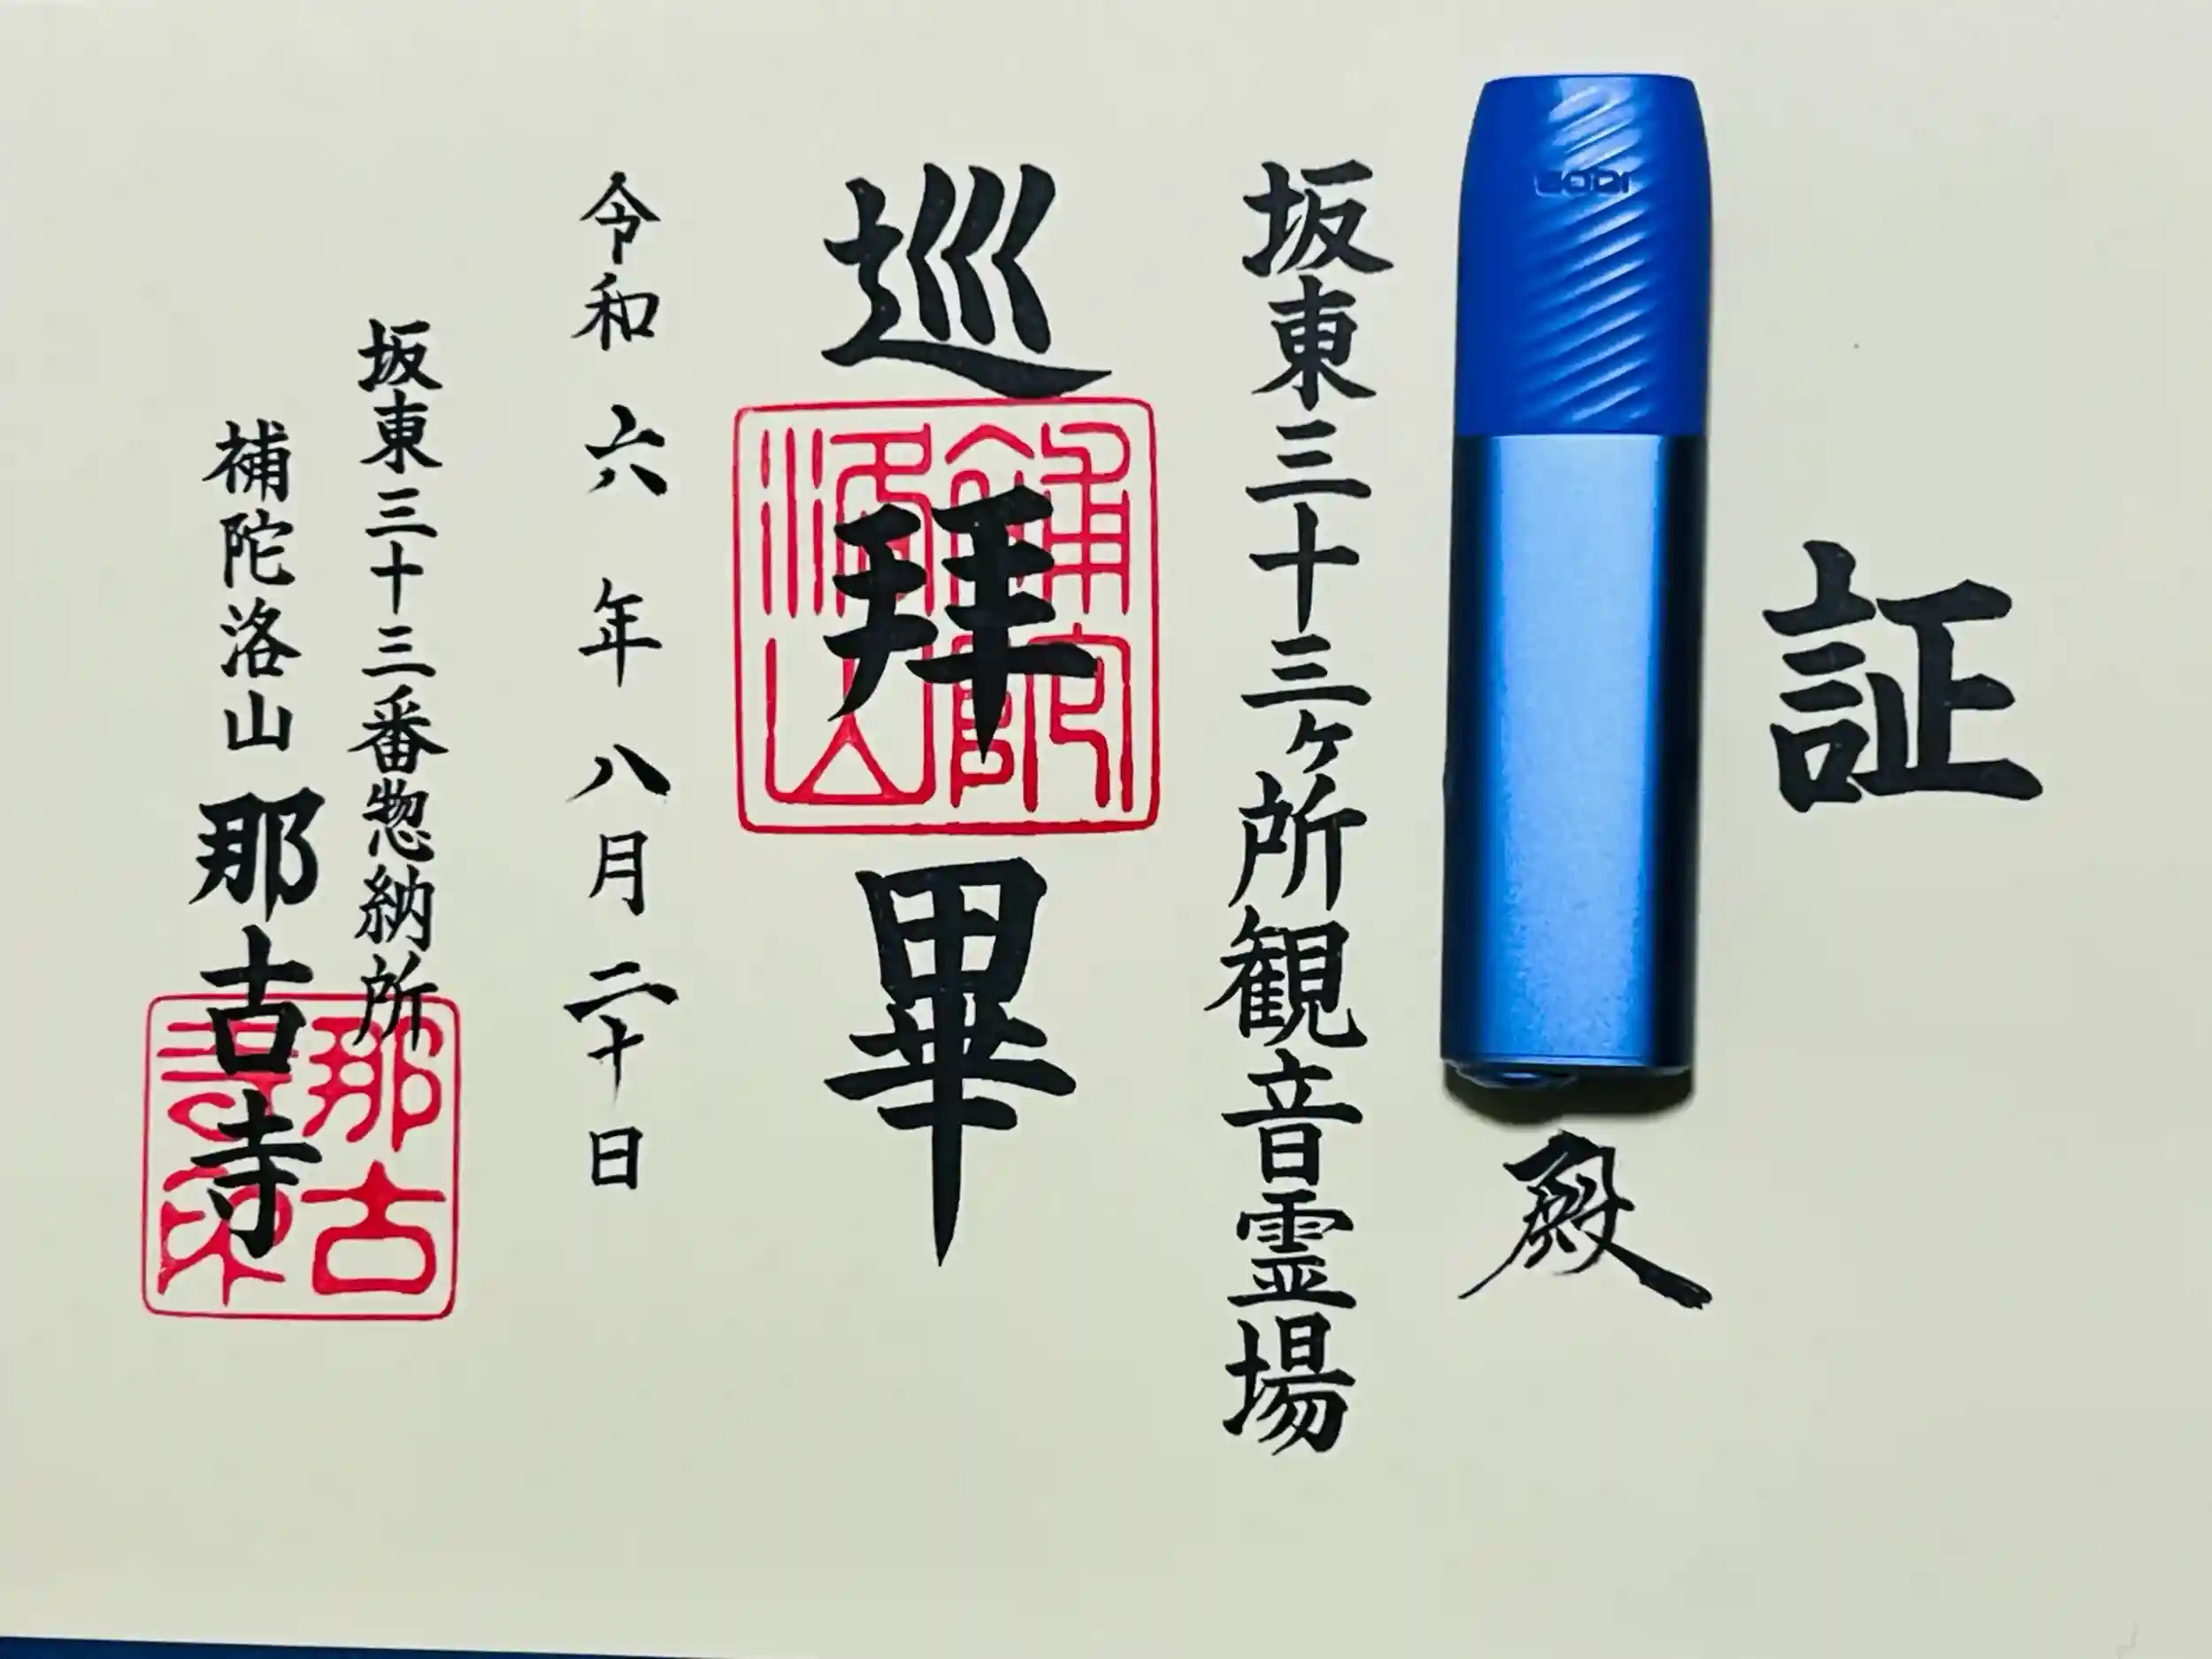 証
IQOS
殿
坂東三十三ヶ所観音霊場
巡拝畢
令和六年八月二十日
坂東三十三番惣納所
補陀洛山那古寺
那古
寺印